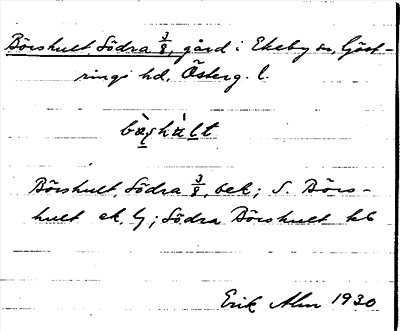 Börshult, Södra 3/8, gård i Ekeby sn, Göst-
rings hd, Österg. l.
Börshult, Södra 3/8, bek; S. Börs-
hult ek. ; Södra Börshult
Erik Alm 1930